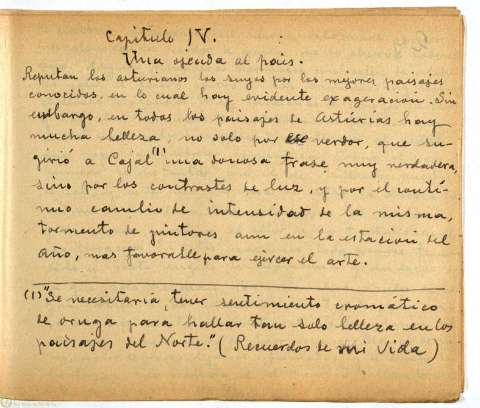 Capitulo IV.
Una ojeada al pais.
Reputan los asturianos los suyos por los mejores paisajes
conocidos, en lo cual hay evidente exageracion. Sin
embargo, en todos los paisajes de Asturias hay
mucha belleza, no solo por ese verdor, que su-
girió a Cajal (1) una donosa frase muy verdadera,
sino por los contrastes de luz, y por el conti-
nuo cambio de intensidad de la misma,
tormento de pintores aun en la estación del
año, mas favorable para ejercer el arte.
(1) "Se necesitaria, tener sentimiento cromático
de oruga para hallar tan solo belleza en los
paisajes del Norte." (Recuerdos de mi Vida)